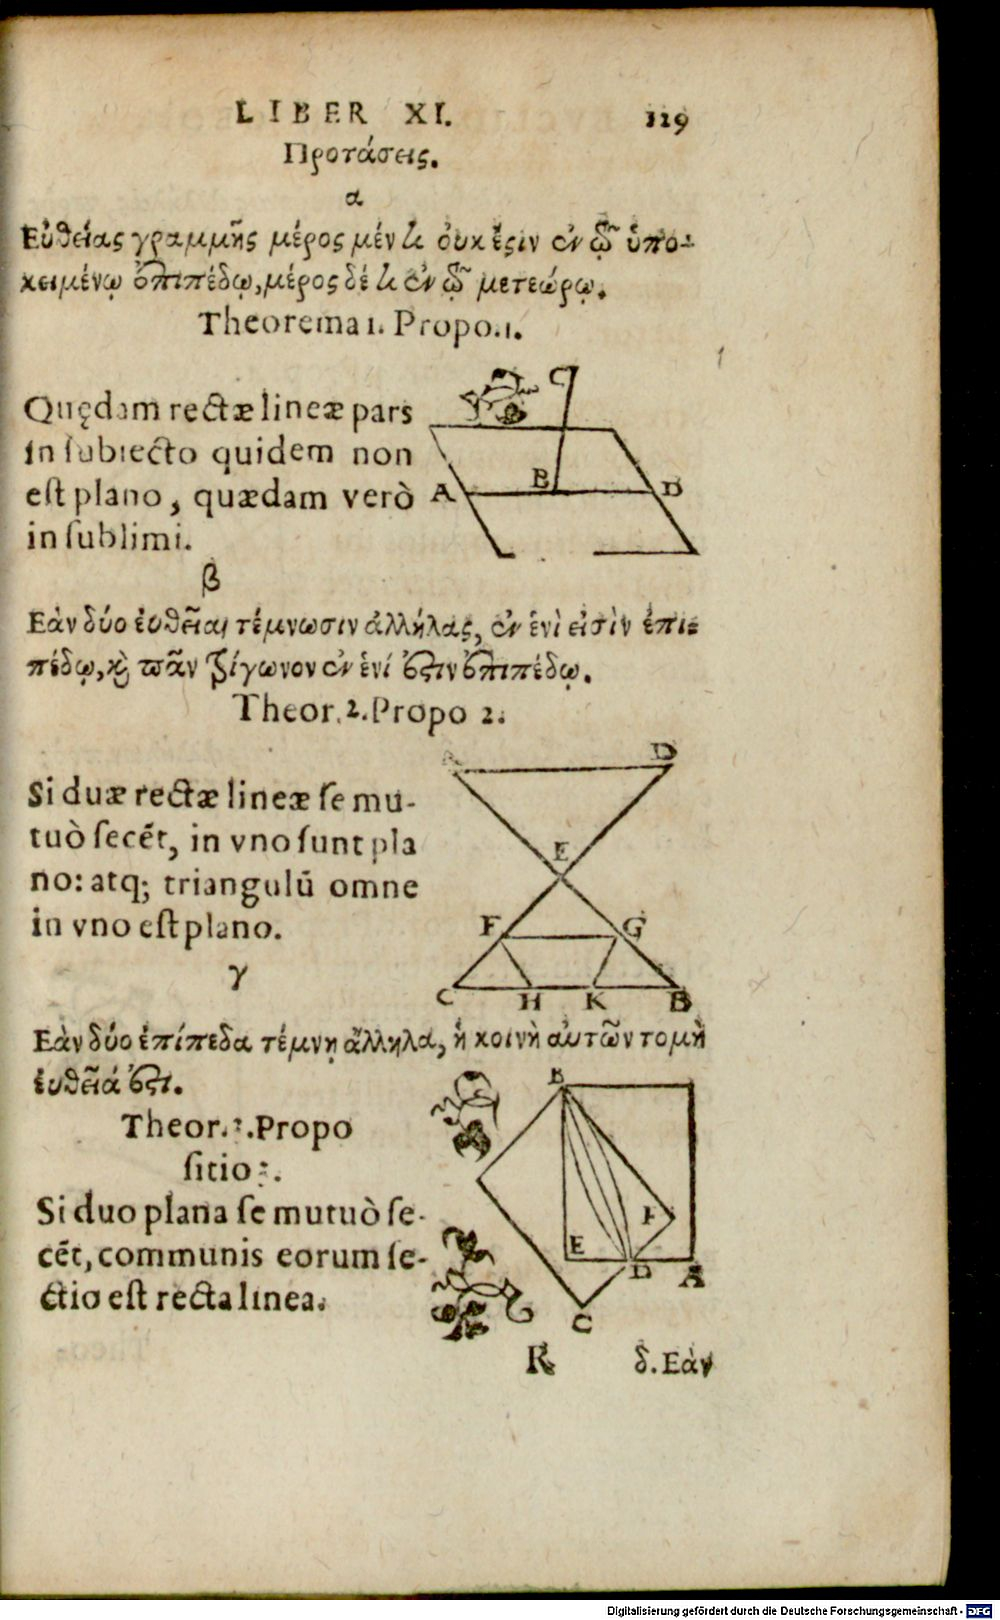 LIBER XI. 119
Προτάσεις.
α
Εὐθείας γραμμῆς μέρος μέν τι οὐκ ἔςιν ἐν ᾧ ὑπο-
κειμένῳ ἐπιπέδῳ, μέρος δέ τι ἐν ᾧ μετεώρῳ.
Theorema 1. Propo. 1.
Quędam rectæ lineæ pars
in ſubiecto quidem non
eſt plano, quædam verò
in ſublimi.
C
A B D
β
Εὰν δύο ἐυθεῖαι τέμνωσιν ἀλλήλας, ἐν ἑνὶ εἰσὶν ἐπι-
πέδῳ, καὶ ϖᾶν τρίγωνον ἐν ἑνί ἐςιν ἐπιπέδῳ.
Theor. 2. Propo 2.
Si duæ rectæ lineæ ſe mu-
tuò ſecẽt, in vno ſunt pla
no: atq; triangulũ omne
in vno eſt plano.
A D
E
F G
C H K B
γ
Εὰν δύο ἐπίπεδα τέμνῃ ἄλληλα, ἡ κοινὴ αὐτῶν τομὴ
ἐυθεῖά ἐςι.
Theor. 3. Propo
ſitio 3.
Si duo plana ſe mutuò ſe-
cẽt, communis eorum ſe-
ctio eſt recta linea.
B
F
E D A
C
R δ. Εὰν
Digitalisierung gefördert durch die Deutsche Forschungsgemeinschaft - DFG